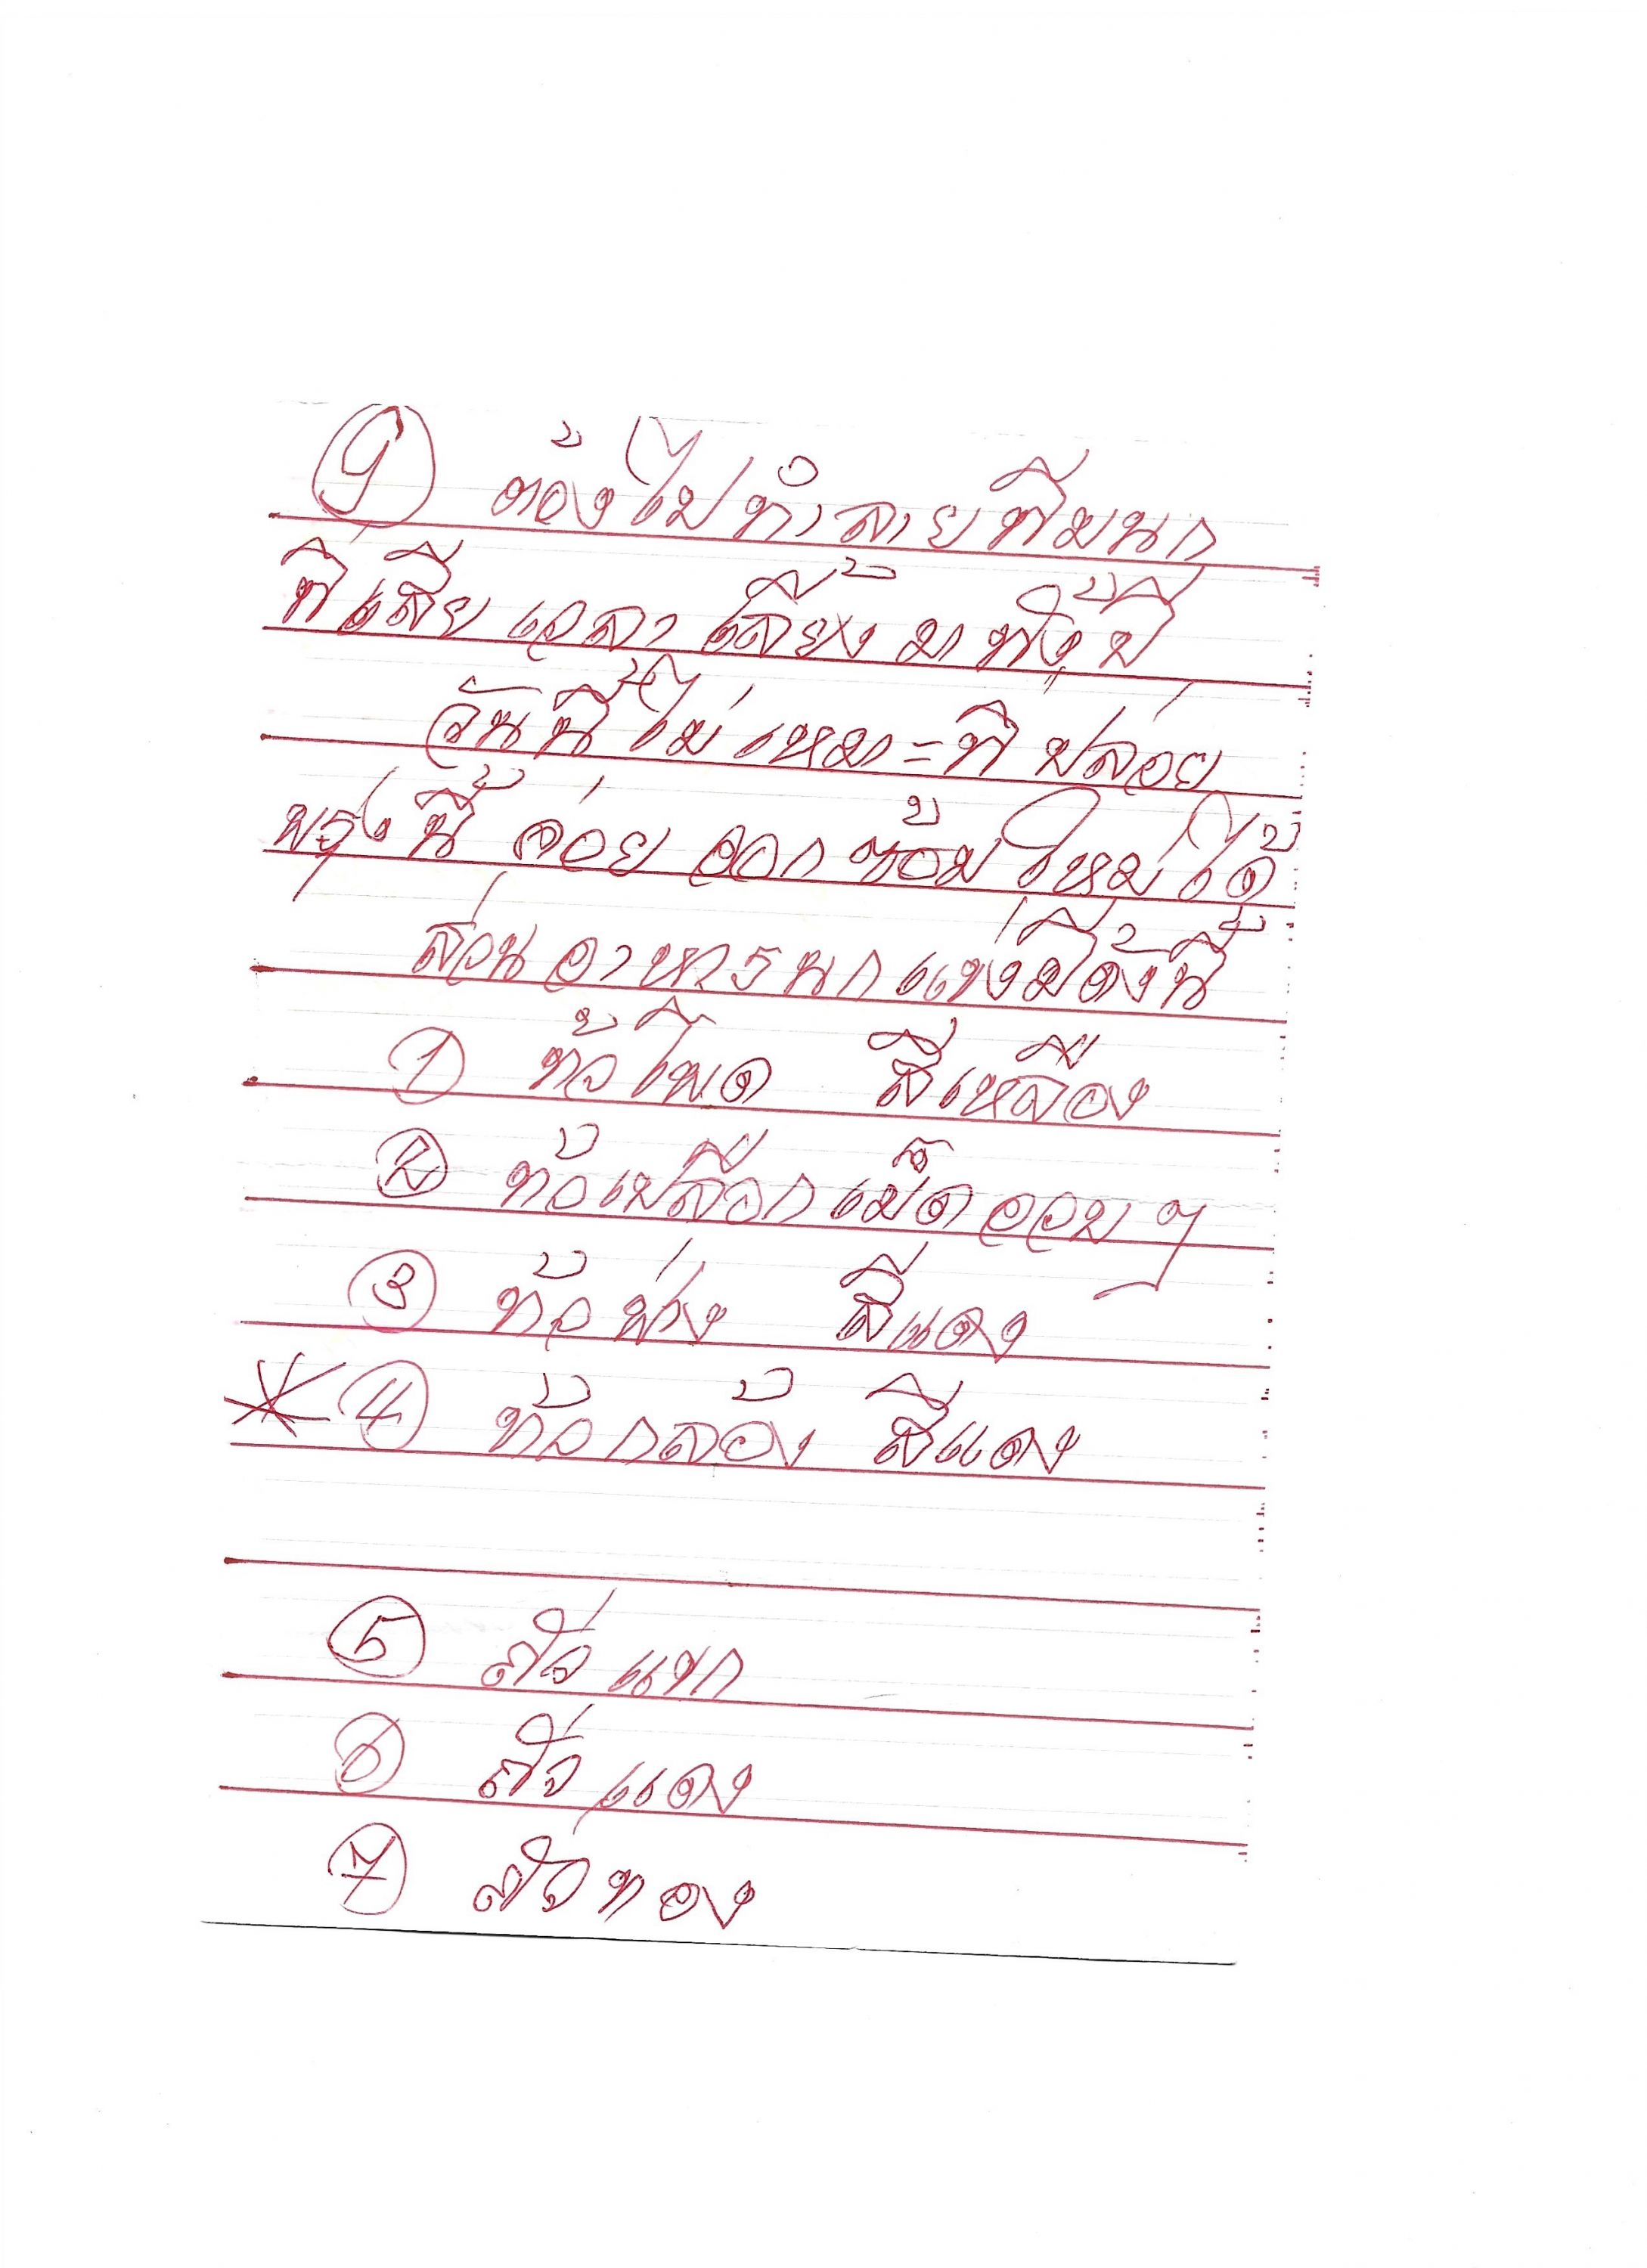 9 ต้องไปทำลายทีมนก
ที่เสียเวลาเลี้ยงมาทั้งปี
วันนี้ไม่เหมาะที่ปล่อย
พรุ่งนี้ค่อยออกซ้อมใหม่ได้
ส่วนอาหารนกแข่งมีดังนี้
1 ข้าวโพด สีเหลือง
2 ข้าวเปลือกเม็ดอวบๆ
3 ข้าวฟ่าง สีแดง
* 4 ข้าวกล้อง สีแดง
5 ถั่วแขก
6 ถั่วแดง
7 ถั่วทอง